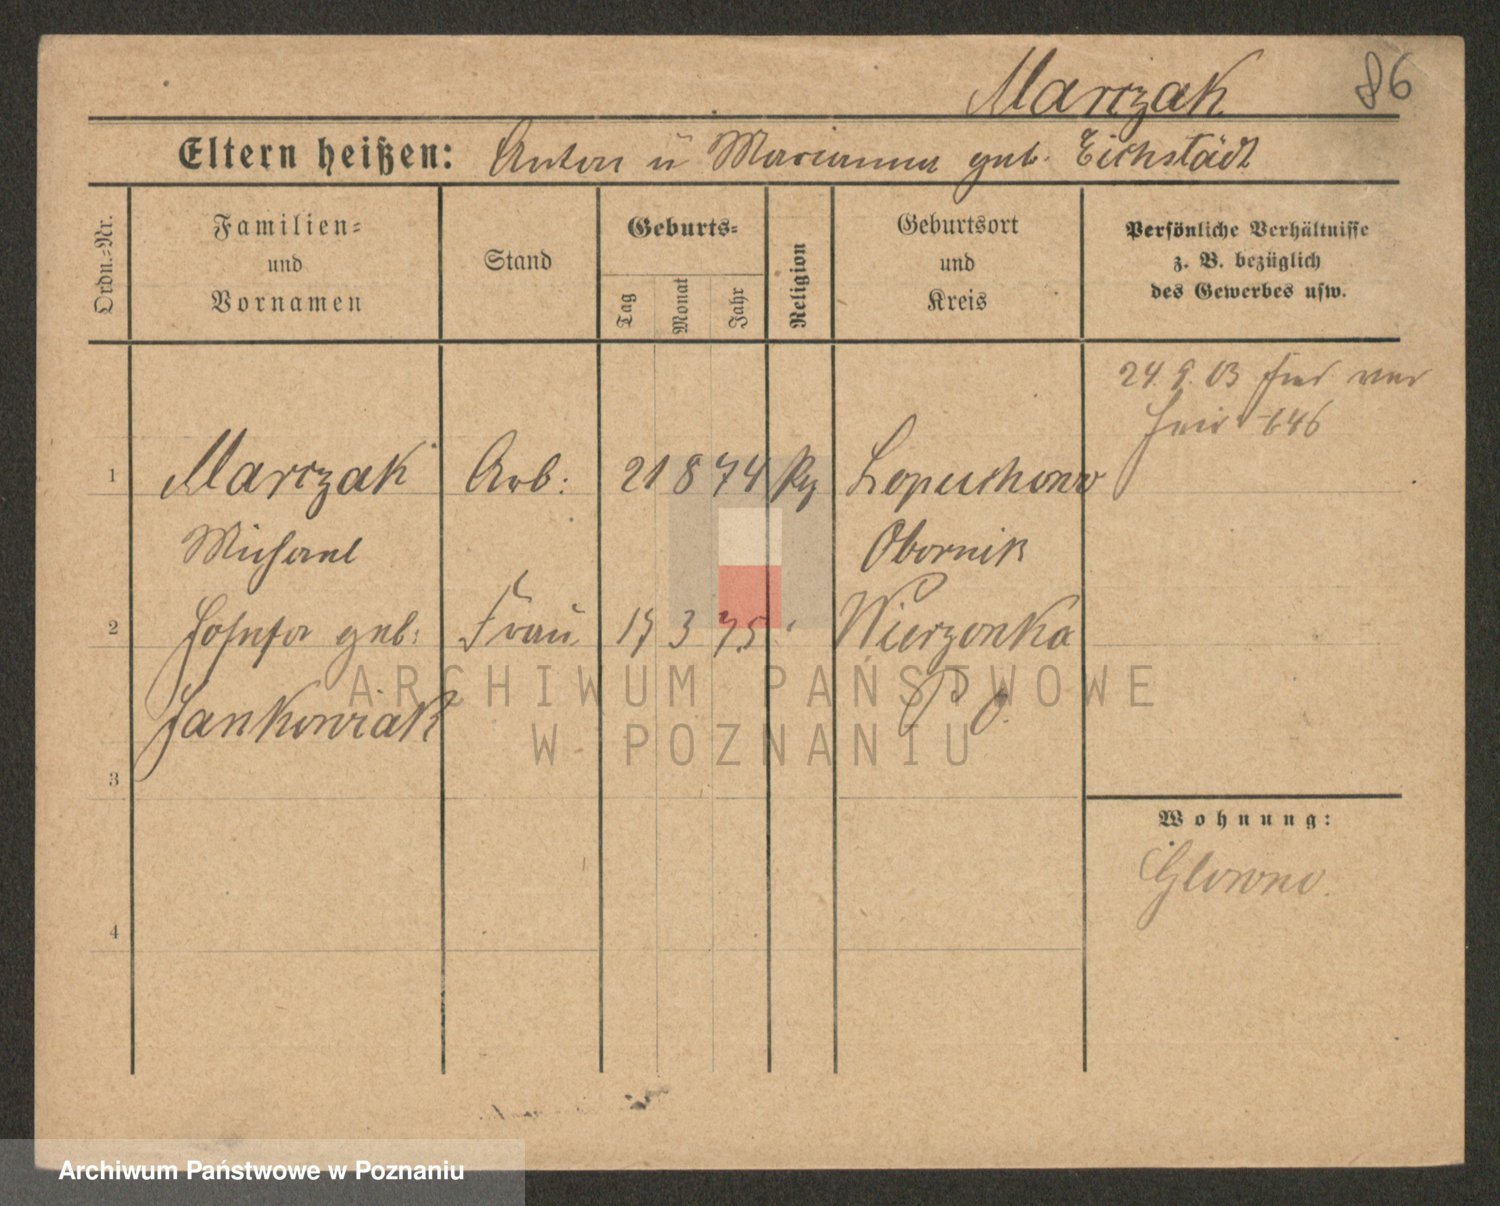 Marczak
86
Eltern heißen: Anton u Marianna geb. Eichstädt
Ordn.=Nr.
Familien=
und
Vornamen
Stand
Geburts=
Tag
Monat
Jahr
Religion
Geburtsort
und
Kreis
Persönliche Verhältnisse
z. B. bezüglich
des Gewerbes usw.
24. 9. 03
646
1 Marczak Arb: 21 8 74 Lopuchowo
Michael Obornik
2 Josefa geb: Frau 3 75 Wierzonka
Jankowiak P. O.
3
4
Wohnung:
Glowno.
ARCHIWUM PAŃSTWOWE
W POZNANIU
Archiwum Państwowe w Poznaniu